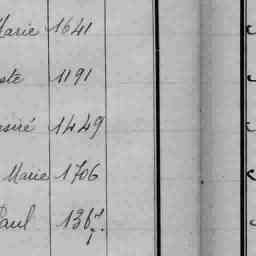 Marie 1641
ste 1191
siré 1449
Marie 1706
Paul